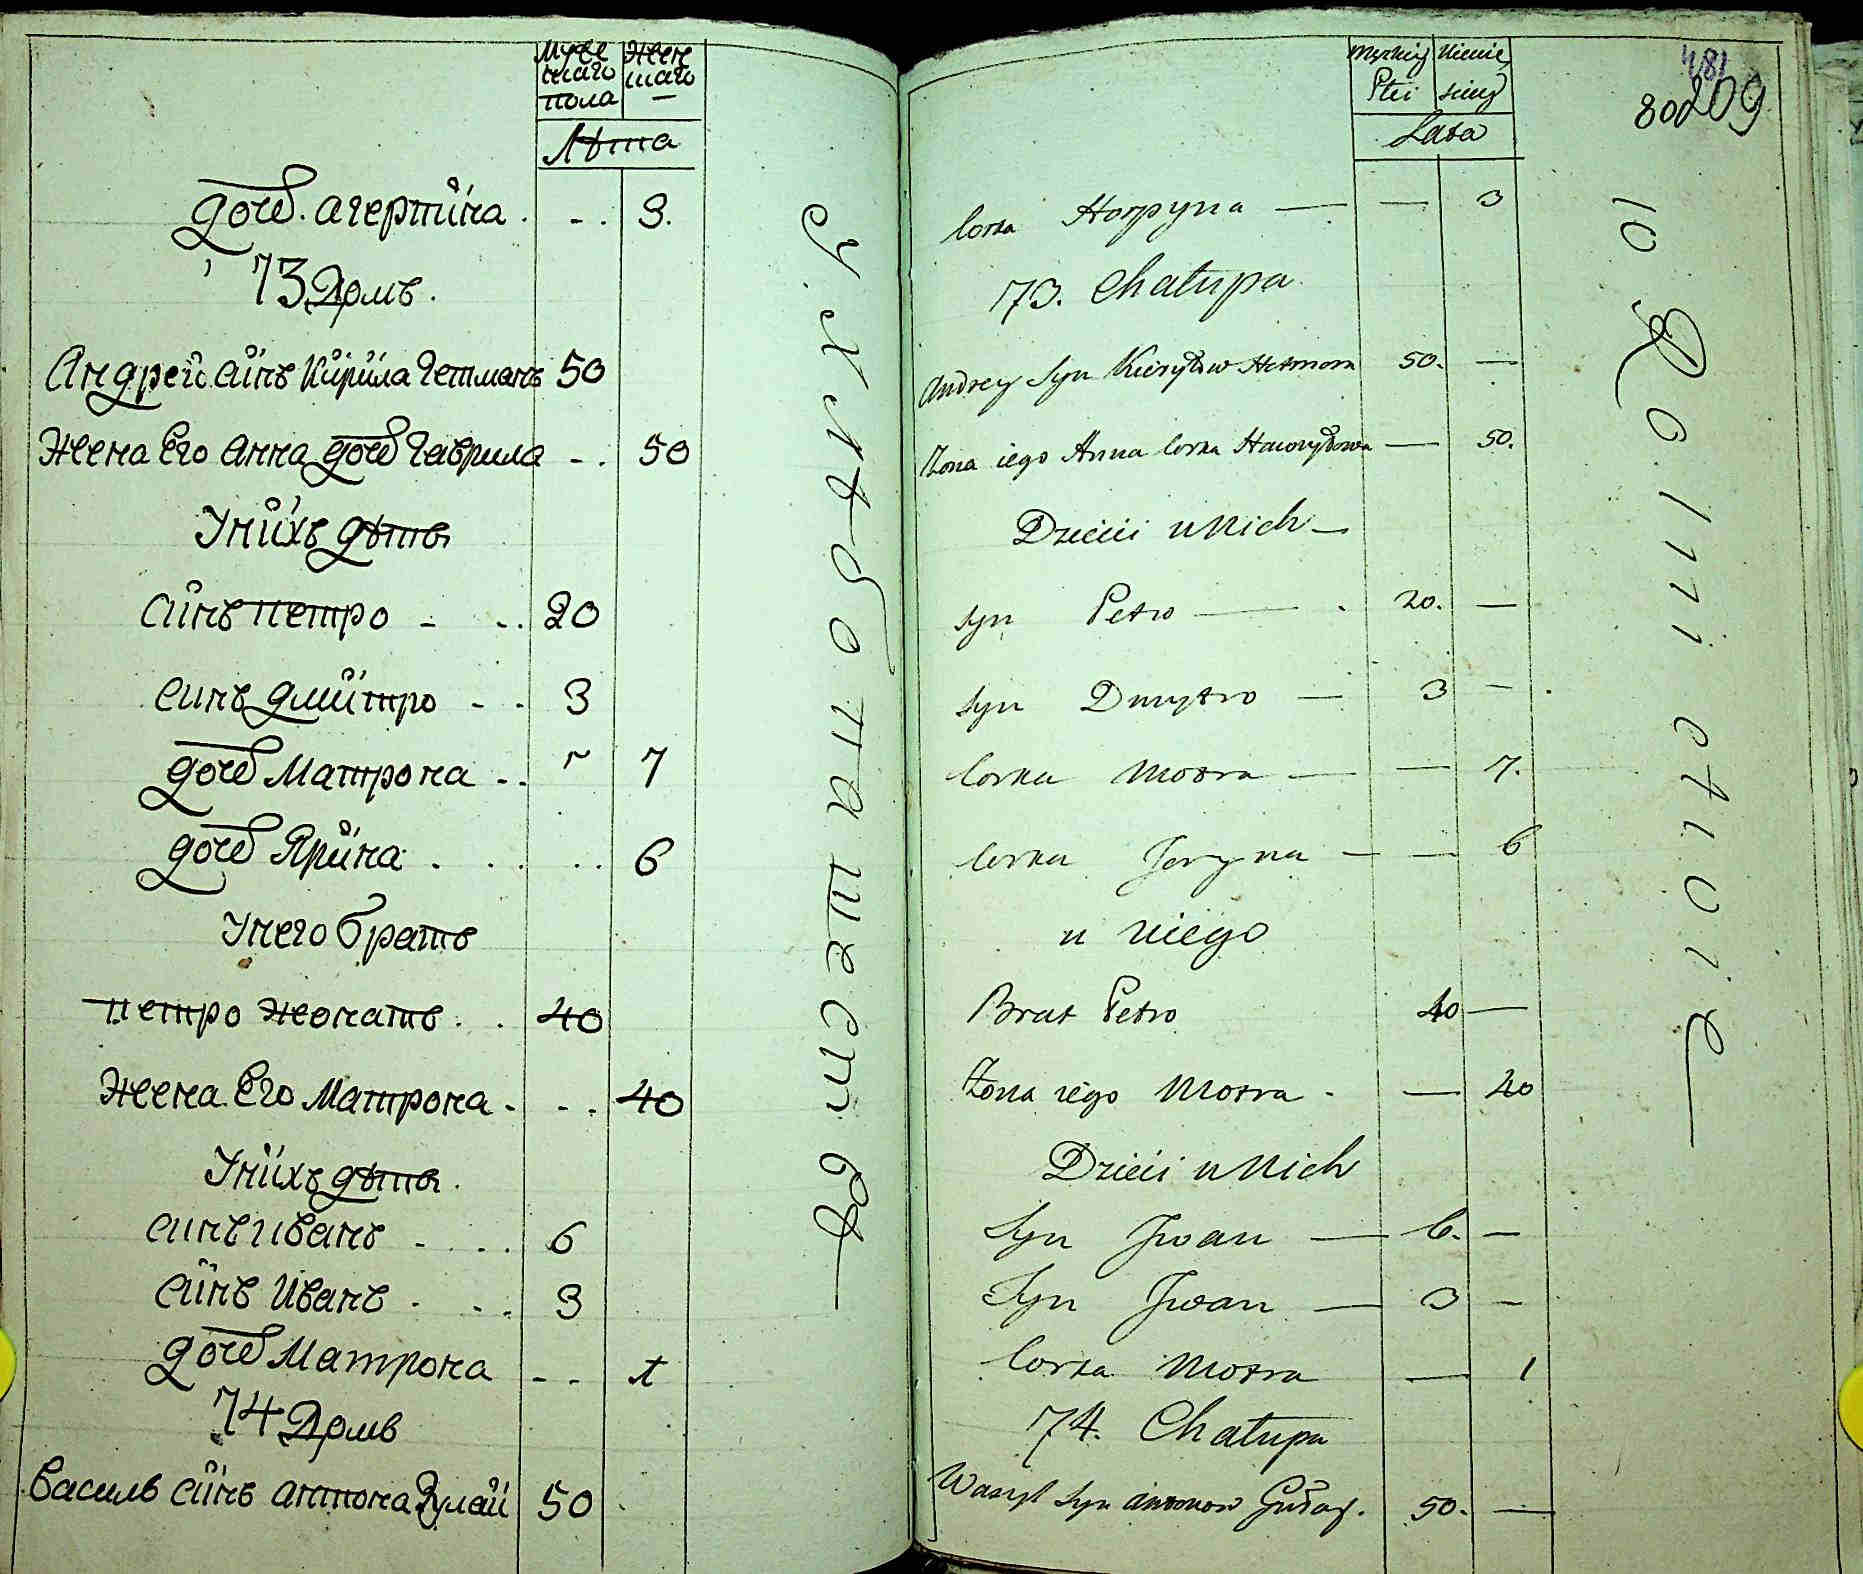 Мужескаго пола Женскаго
Лѣта
дочь агерпина . - . . 3.
73 Домъ.
Андрей синъ Кирила Гетманъ 50
Жена Его анна дочь Гаврила - . 50
Унихъ дѣтѣ
синъ петро - . . 20
синъ дмитро - - 3
дочь Матрона - . 7
дочь Ярина . . . . . 6
Унего братъ
петро жонатъ . . 40
Жена Его Матрона . - . . 40
Унихъ дѣтѣ .
синъ иванъ - . . . 6
синъ Иванъ . - . . 3
дочь Матрона - - 1
74 Домъ
Василь синъ антона Гулай 50
Ухлѣбопашествѣ
Męzkiej Płci Kieńskiej
Lata
481
80 209
Corka Horpyna — — 3
73. Chałupa
Andrey Syn Kieryłow Hetman 50. —
Zona iego Anna Corka Hawryłowa — 50.
Dzieci u Nich —
Syn Petro — . 20. —
Syn Dmytro — 3 — .
Corka Motra — — 7.
Corka Jeryna — — 6
u niego
Brat Petro 40 —
Zona iego Motra - — 40
Dzieci u Nich
Syn Jwan — 6. —
Syn Jwan — 3 —
Corka Motra — 1
74. Chałupa
Wasyl Syn Antonow Gułay. 50. —
10 Rolnictwie